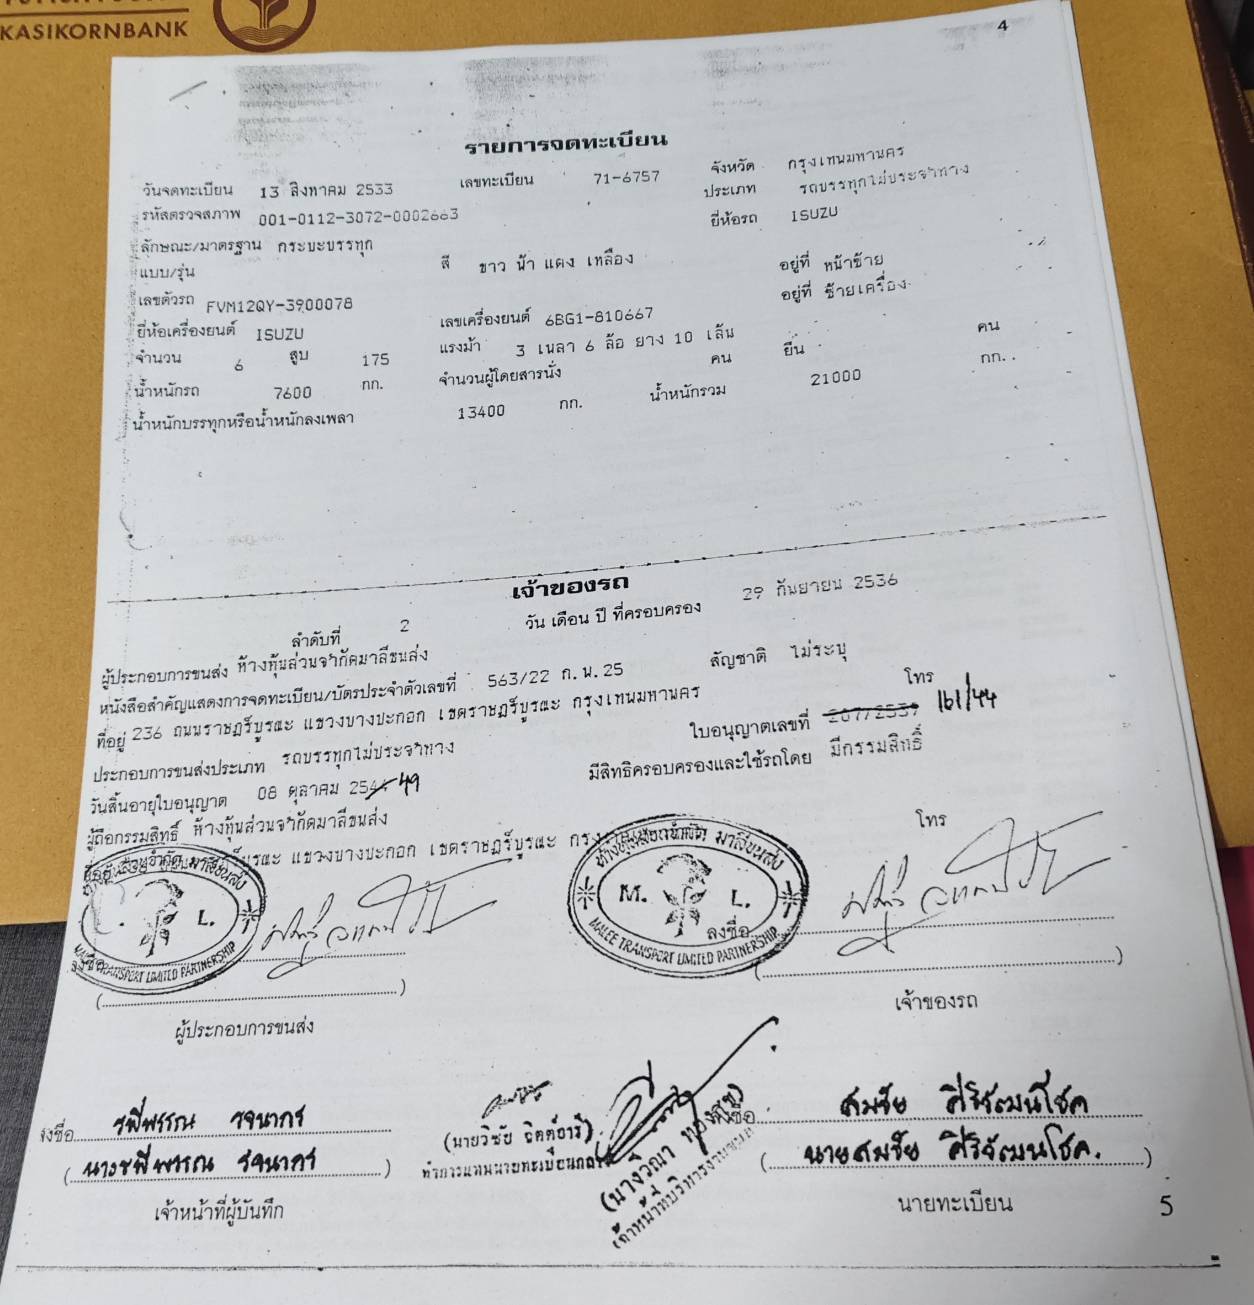 KASIKORNBANK
4
รายการจดทะเบียน
วันจดทะเบียน 13 สิงหาคม 2533 เลขทะเบียน 71-6757 จังหวัด กรุงเทพมหานคร
รหัสตรวจสภาพ 001-0112-3072-0002663 ประเภท รถบรรทุกไม่ประจำทาง
ลักษณะ/มาตรฐาน กระบะบรรทุก ยี่ห้อรถ ISUZU
แบบ/รุ่น สี ขาว น้ำ แดง เหลือง
เลขตัวรถ FVM12QY-3900078 อยู่ที่ หน้าซ้าย
ยี่ห้อเครื่องยนต์ ISUZU เลขเครื่องยนต์ 6BG1-810667 อยู่ที่ ซ้ายเครื่อง
จำนวน 6 สูบ 175 แรงม้า 3 เพลา 6 ล้อ ยาง 10 เส้น
น้ำหนักรถ 7600 กก. จำนวนผู้โดยสารนั่ง คน ยืน คน
น้ำหนักบรรทุกหรือน้ำหนักลงเพลา 13400 กก. น้ำหนักรวม 21000 กก.
เจ้าของรถ
ลำดับที่ 2 วัน เดือน ปี ที่ครอบครอง 29 กันยายน 2536
ผู้ประกอบการขนส่ง ห้างหุ้นส่วนจำกัดมาลีขนส่ง
หนังสือสำคัญแสดงการจดทะเบียน/บัตรประจำตัวเลขที่ 563/22 ก.พ.25 สัญชาติ ไม่ระบุ
ที่อยู่ 236 ถนนราษฎร์บูรณะ แขวงบางปะกอก เขตราษฎร์บูรณะ กรุงเทพมหานคร โทร
ประกอบการขนส่งประเภท รถบรรทุกไม่ประจำทาง ใบอนุญาตเลขที่ 161/44
วันสิ้นอายุใบอนุญาต 08 ตุลาคม 2544 49 มีสิทธิครอบครองและใช้รถโดย มีกรรมสิทธิ์
ผู้ถือกรรมสิทธิ์ ห้างหุ้นส่วนจำกัดมาลีขนส่ง
ราษฎร์บูรณะ แขวงบางปะกอก เขตราษฎร์บูรณะ โทร
ห้างหุ้นส่วนจำกัด มาลีขนส่ง
L.
TRANSPORT LIMITED PARTNERSHIP
ห้างหุ้นส่วนจำกัด มาลีขนส่ง
M. L.
MALEE TRANSPORT LIMITED PARTNERSHIP
ลงชื่อ
ผู้ประกอบการขนส่ง
เจ้าของรถ
ลงชื่อ รพีพรรณ รจนากร
(นางรพีพรรณ รจนากร)
เจ้าหน้าที่ผู้บันทึก
ทำการแทนนายทะเบียนกลาง
ลงชื่อ สมชัย ศิริวัฒนโชค
(นายสมชัย ศิริวัฒนโชค.)
นายทะเบียน
5